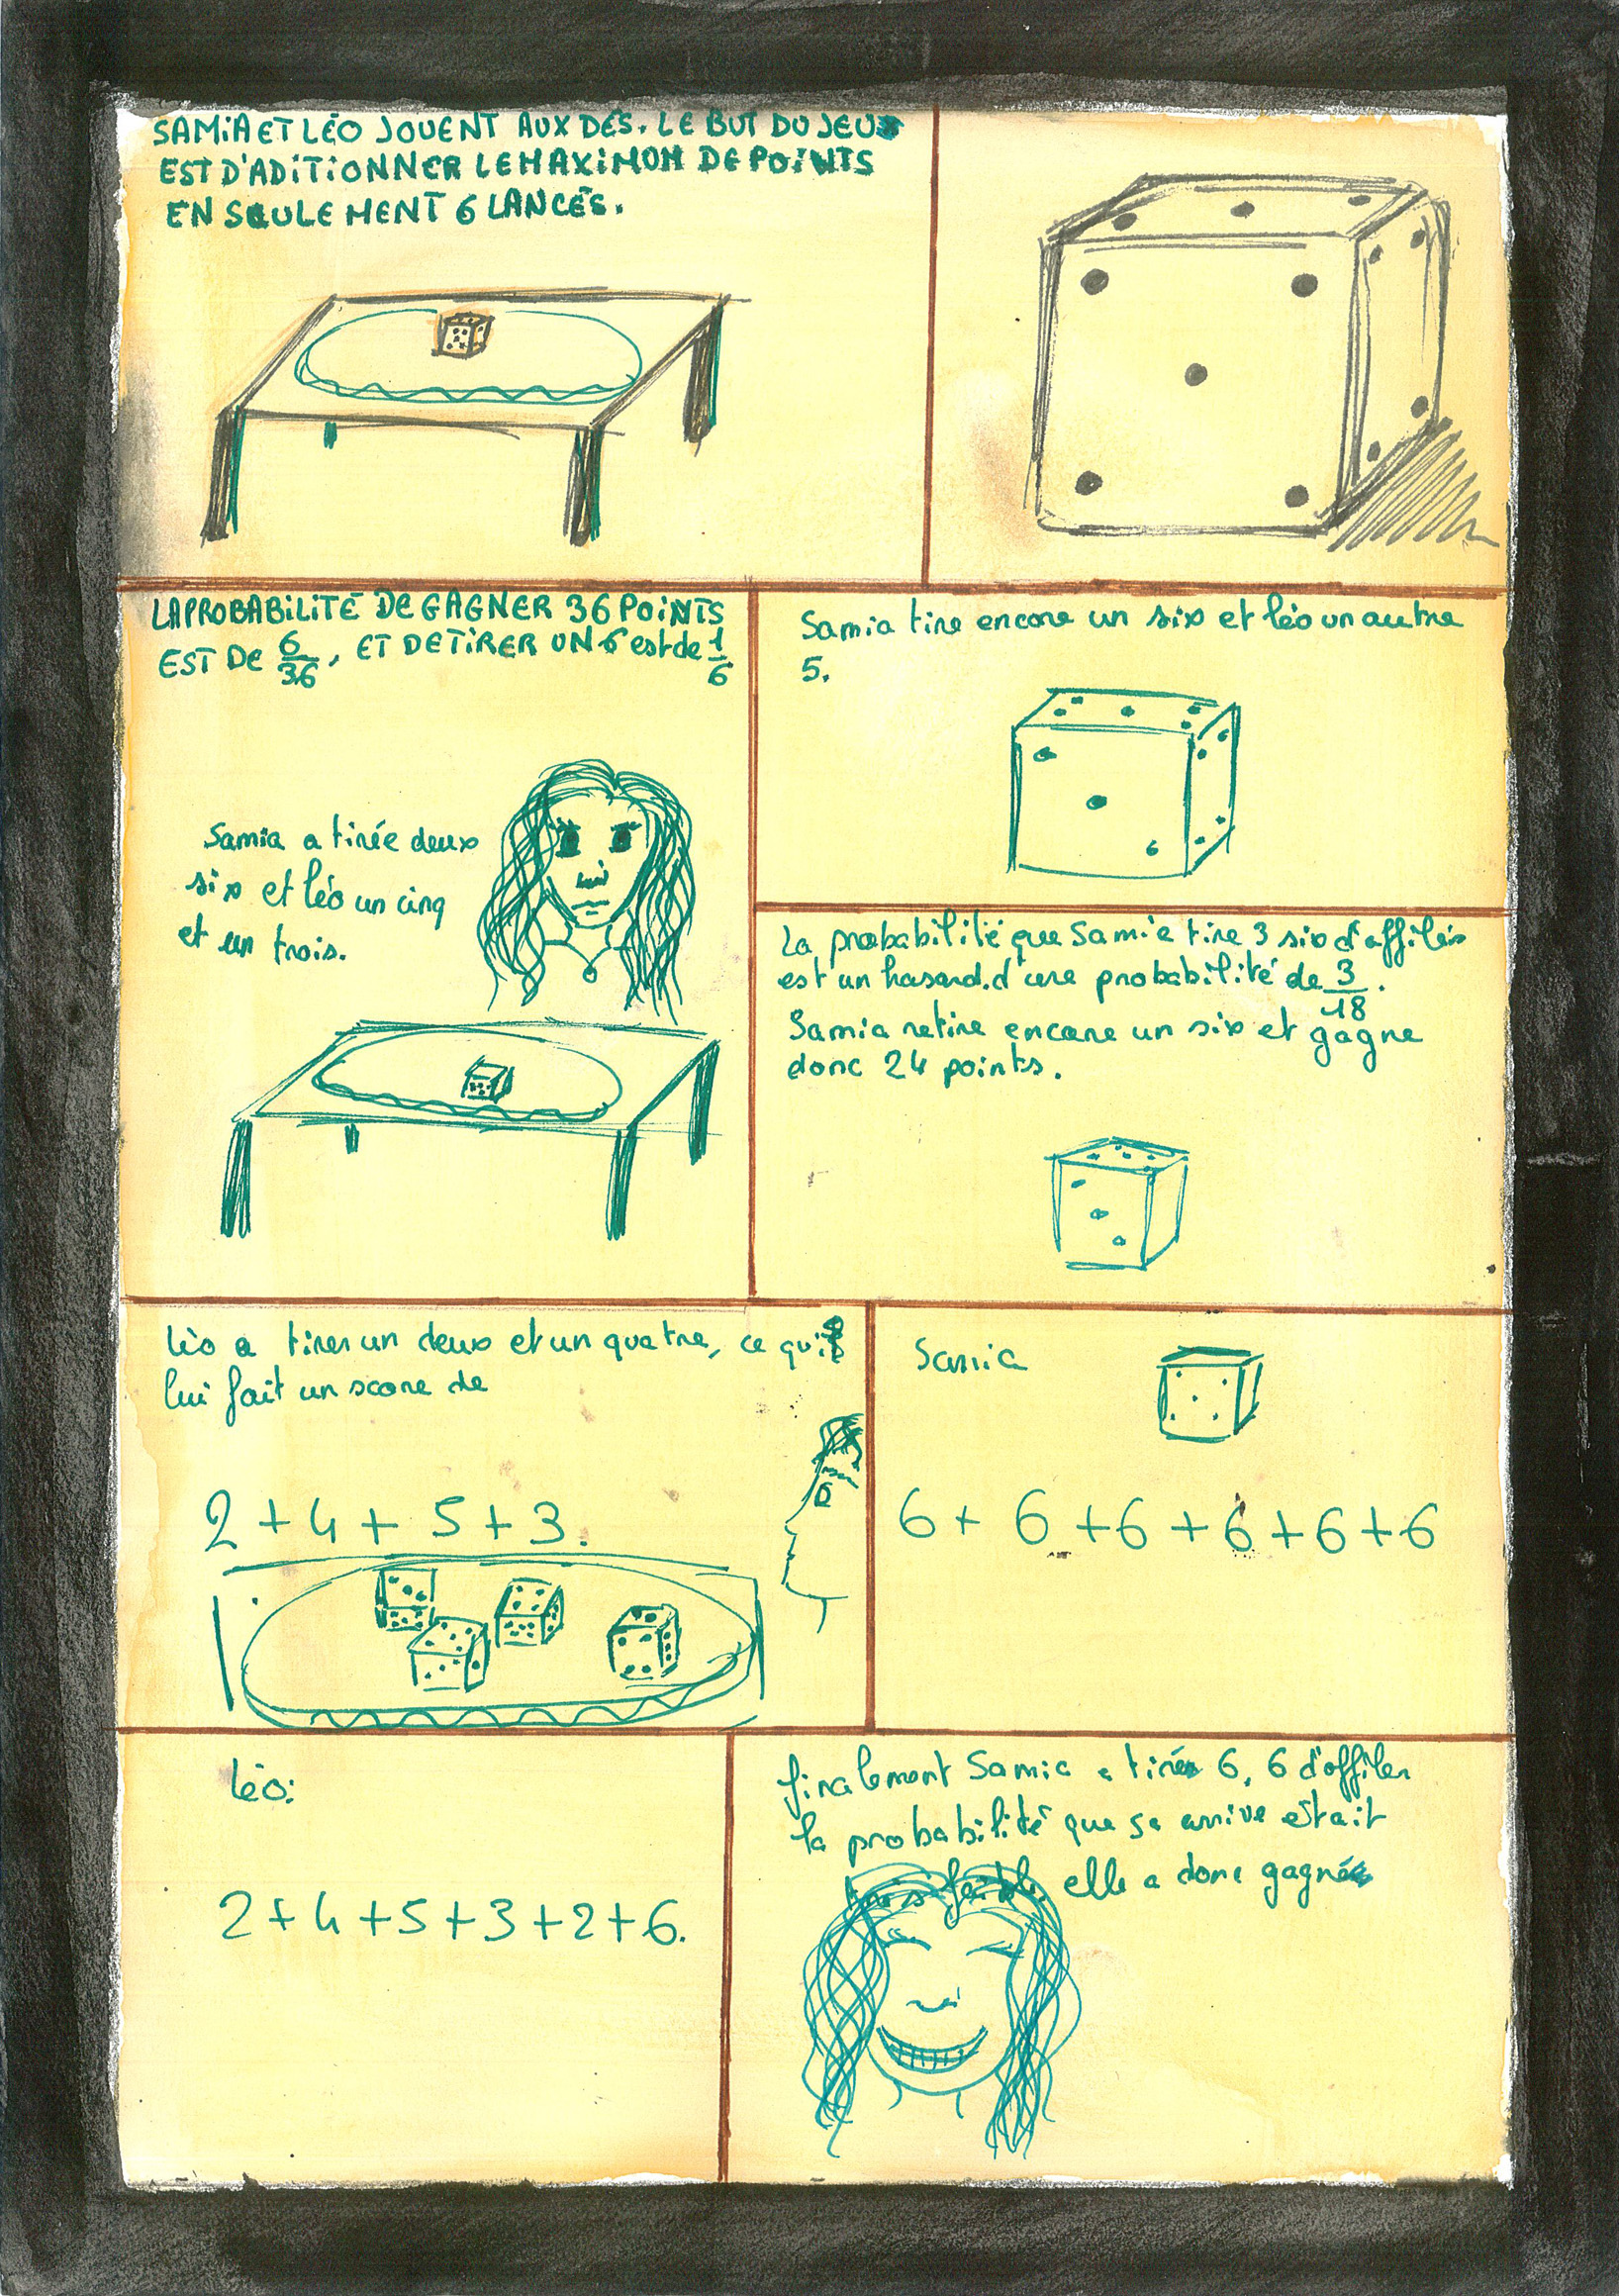 SAMiA ET LÉO JOUENT AUX DÉS. LE BUT DU JEU
EST D'ADiTiONNER LE MAXiMUM DE POiNTS
EN SEULEMENT 6 LANCÉS.
LA PROBABiLiTÉ DE GAGNER 36 POiNTS
EST DE 6/36, ET DE TiRER UN 6 est de 1/6
Samia a tirée deux
six et léo un cinq
et un trois.
Samia tire encore un six et léo un autre
5.
La probabilité que Samia tire 3 six d'affilés
est un hasard.d'une probabilité de 3/18.
Samia retire encore un six et gagne
donc 24 points.
léo a tirer un deux et un quatre, ce qui
lui fait un score de
2+4+5+3.
Samia
6+6+6+6+6+6
léo:
2+4+5+3+2+6.
finalement Samia a tirée 6, 6 d'affiler
la probabilité que sa arrive était
très faible, elle a donc gagnée